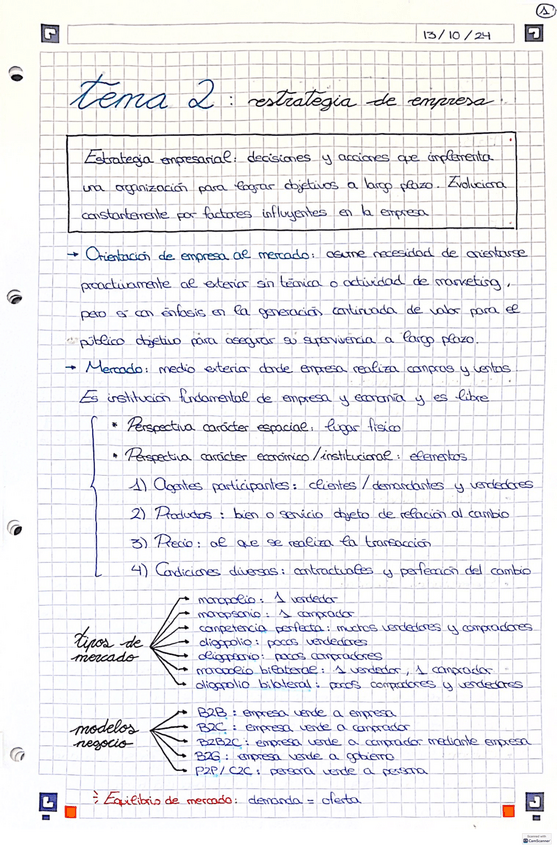 1
13/10/24
tema 2: estrategia de empresa.
Estrategia empresarial: decisiones y acciones que implementa
una organización para lograr objetivos a largo plazo. Evoluciona
constantemente por factores influyentes en la empresa
→ Orientación de empresa al mercado: asume necesidad de orientarse
proactivamente al exterior sin técnica o actividad de marketing,
pero sí con énfasis en la generación continuada de valor para el
público objetivo para asegurar su supervivencia a largo plazo.
→ Mercado: medio exterior donde empresa realiza compras y ventas.
Es institución fundamental de empresa y economía y es libre
* Perspectiva carácter espacial: lugar físico
* Perspectiva carácter económico/institucional: elementos
1) Agentes participantes: clientes/demandantes y vendedores
2) Productos: bien o servicio objeto de relación al cambio
3) Precio: al que se realiza la transacción
4) Condiciones diversas: contractuales y perfección del cambio
tipos de mercado
→ monopolio: 1 vendedor
→ monopsonio: 1 comprador
→ competencia perfecta: muchos vendedores y compradores
→ oligopolio: pocos vendedores
→ oligopsonio: pocos compradores
→ monopolio bilateral: 1 vendedor, 1 comprador
→ oligopolio bilateral: pocos compradores y vendedores
modelos negocio
→ B2B: empresa vende a empresa
→ B2C: empresa vende a comprador
→ B2B2C: empresa vende a comprador mediante empresa
→ B2G: empresa vende a gobierno
→ P2P/C2C: persona vende a persona
Equilibrio de mercado: demanda = oferta
CamScanner